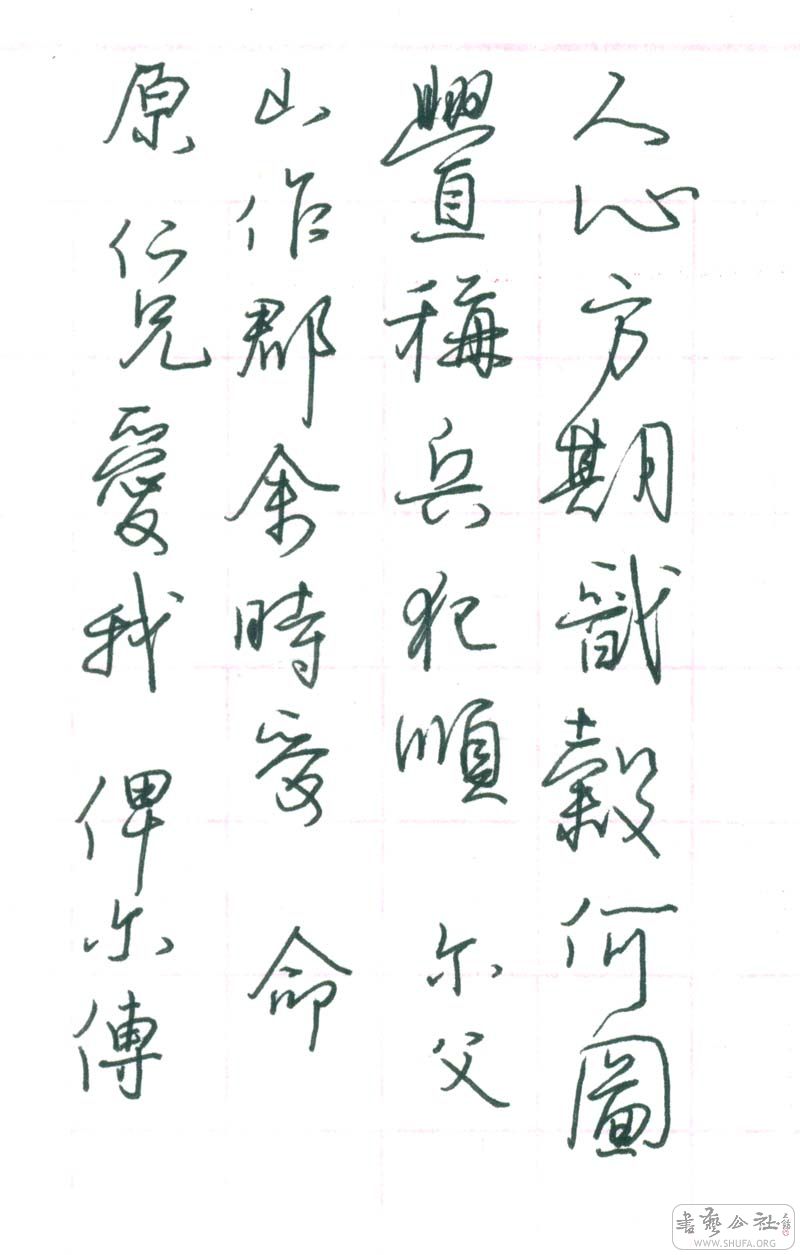 人心方期戩穀何圖
釁稱兵犯順 尔父
山作郡余時受 命
原 仁兄愛我 俾尔傳
書藝公社
WWW.SHUFA.ORG